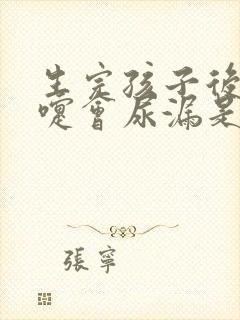 生完孩子後
嚏會尿漏是
張寧